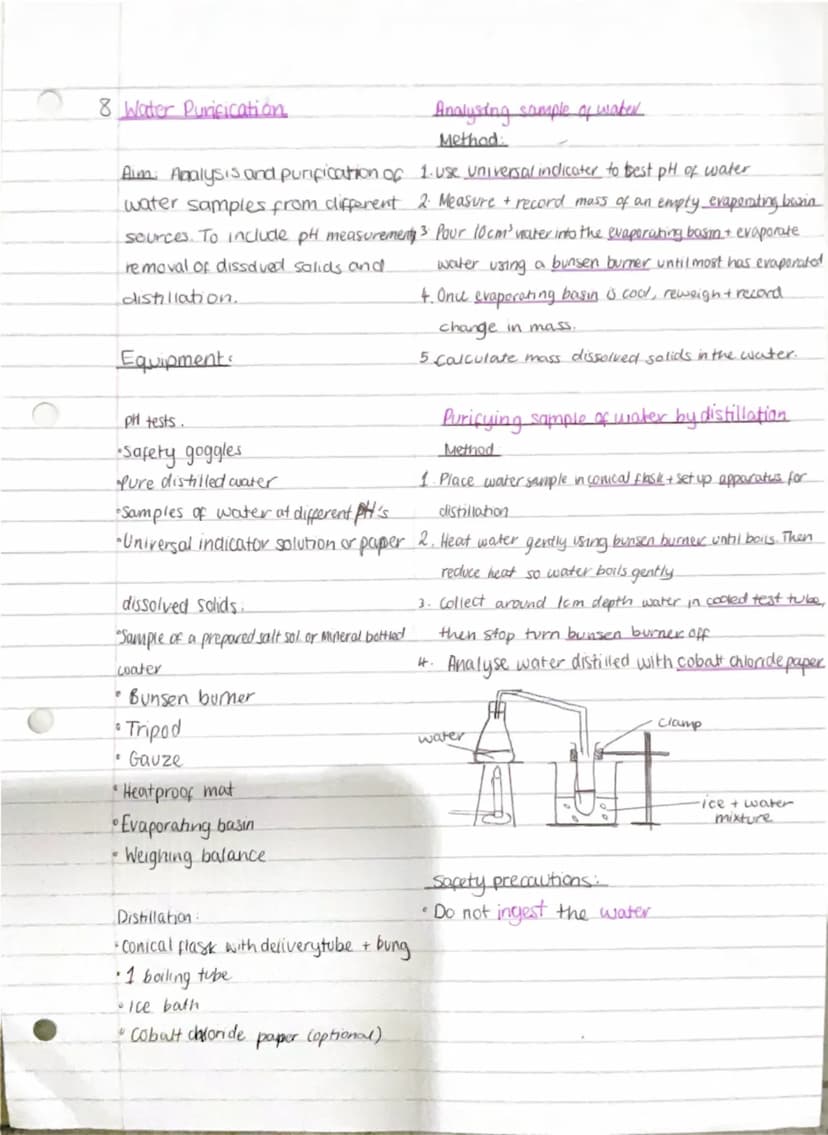 8 Water Purification
Aim: Analysis and purification of
water samples from different
sources. To include pH measurement,
removal of dissolved solids and
distillation.
Equipment:
pH tests.
• Safety goggles
• Pure distilled water
• Samples of water at different pH's
• Universal indicator solution or paper
dissolved solids:
• Sample of a prepared salt sol. or Mineral bottled
water
• Bunsen burner
• Tripod
• Gauze
• Heatproof mat
• Evaporating basin
• Weighing balance
Distillation:
• Conical flask with delivery tube + bung
• 1 boiling tube
• ice bath
• Cobalt chloride paper (optional)
Analysing sample of water
Method:
1. use universal indicater to test pH of water
2. Measure + record mass of an empty evaporating basin
3 Pour 10cm³ water into the evaporating basin + evaporate
water using a bunsen burner until most has evaporated
4. Once evaporating basin is cool, reweigh + record
change in mass.
5 Calculate mass dissolved solids in the water.
Purifying sample of water by distillation
Method
1. Place water sample in conical flask + set up apparatus for
distillation
2. Heat water gently using bunsen burner until boils. Then
reduce heat so water boils gently
3. Collect around 1cm depth water in cooled test tube,
then stop turn bunsen burner off
4. Analyse water distilled with cobalt chloride paper
water
clamp
ice + water
mixture
Safety precautions:
• Do not ingest the water